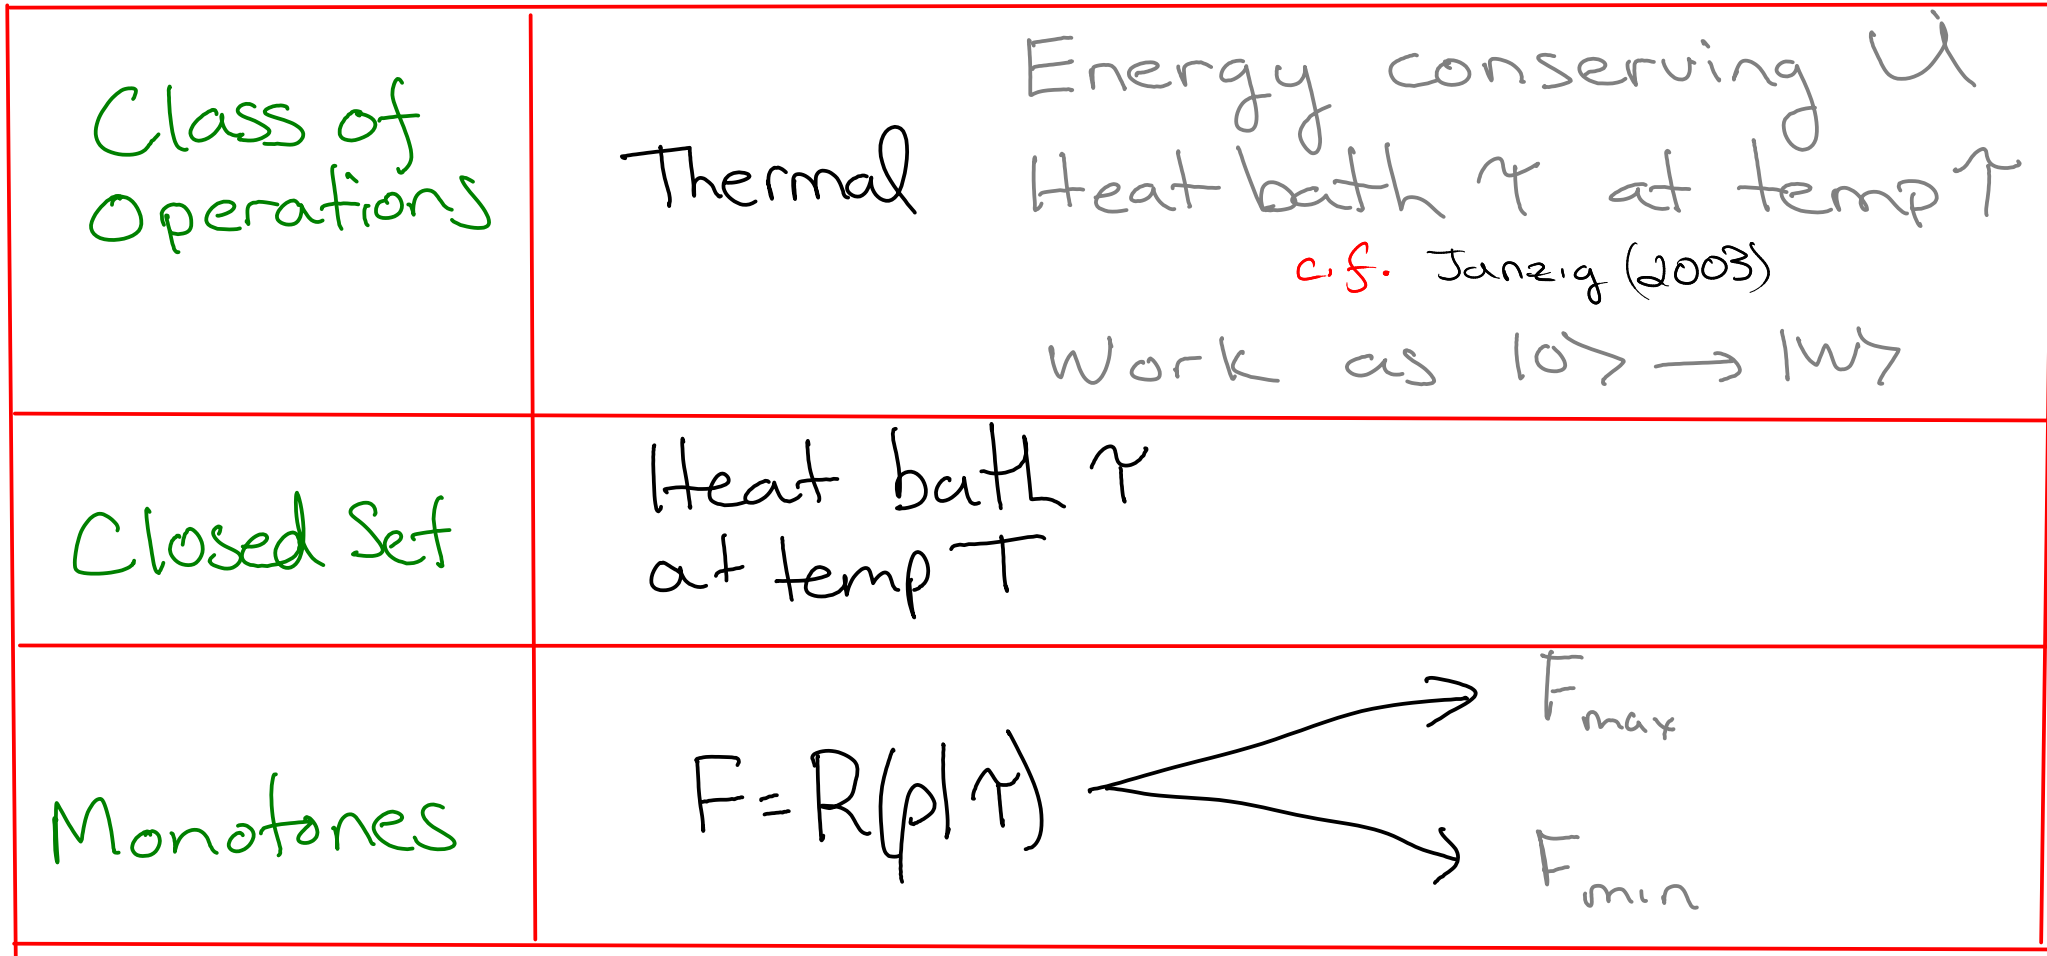 Class of
Operations
Thermal
Energy conserving U
Heat bath τ at temp T
c.f. Janzig (2003)
Work as |0> → |W>
Closed Set
Heat bath τ
at temp T
Monotones
F = R(ρ|τ)
F max
F min